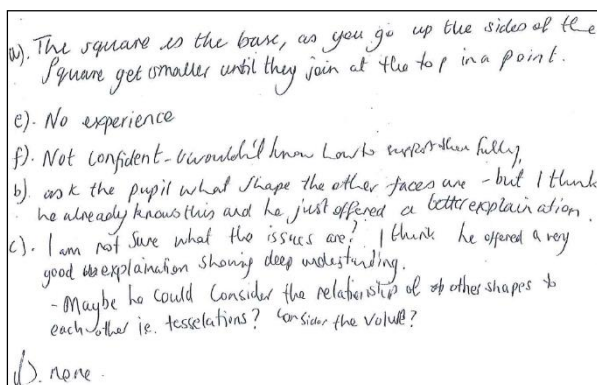 a). The square is the base, as you go up the sides of the
square get smaller until they join at the top in a point.
e). No experience
f). Not confident - I wouldn't know how to support them fully.
b). ask the pupil what shape the other faces are - but I think
he already knows this and he just offered a better explaination.
c). I am not sure what the issues are? I think he offered a very
good explaination showing deep understanding.
- Maybe he could consider the relationship of other shapes to
each other ie. tesselations? Consider the volume?
d). none.